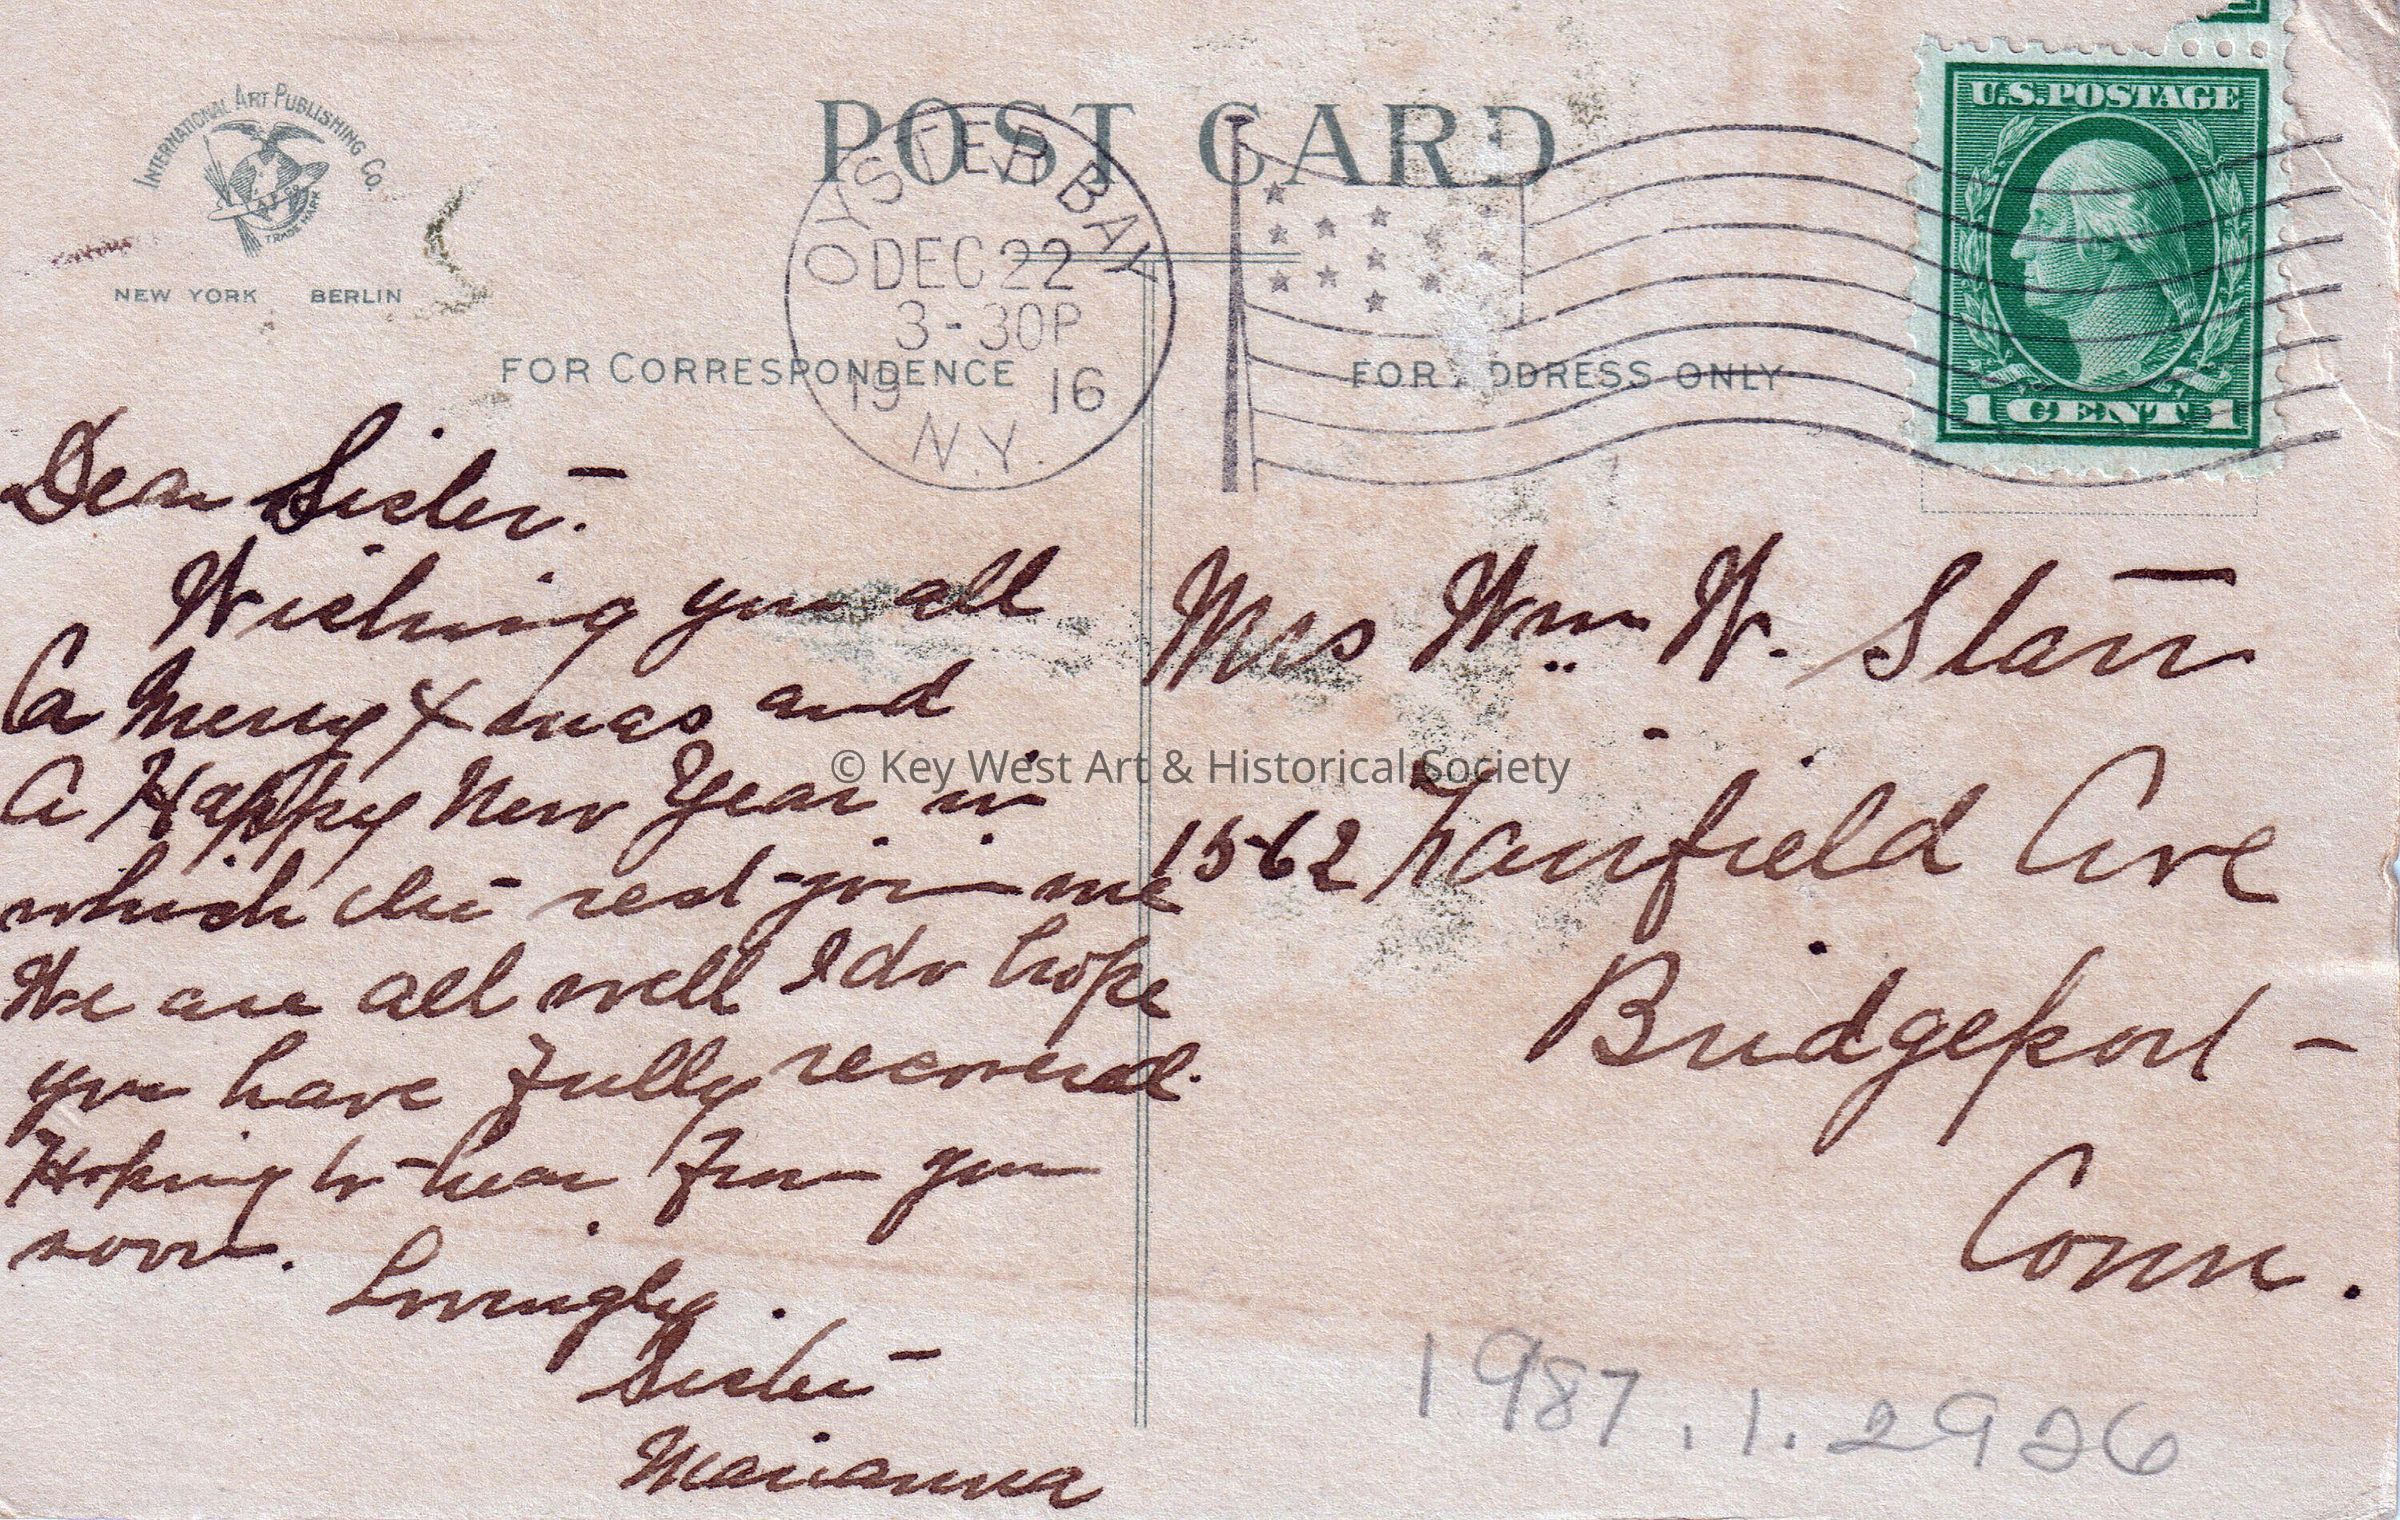 INTERNATIONAL ART PUBLISHING CO.
TRADE MARK
NEW YORK BERLIN
POST CARD
OYSTER BAY
DEC 22
3-30P
19 16
N.Y.
U.S. POSTAGE
1 CENT 1
FOR CORRESPONDENCE
FOR ADDRESS ONLY
Dear Sister.
Wishing you all
a Merry Xmas and
a Happy New Year in
which the rest join me
We are all well I do hope
you have fully recovered.
Hoping to hear from you
soon.
Lovingly.
Sister
Marianna
Mrs Wm. W. Starr
1562 Fairfield Ave
Bridgeport -
Conn.
© Key West Art & Historical Society
1987.1.2926